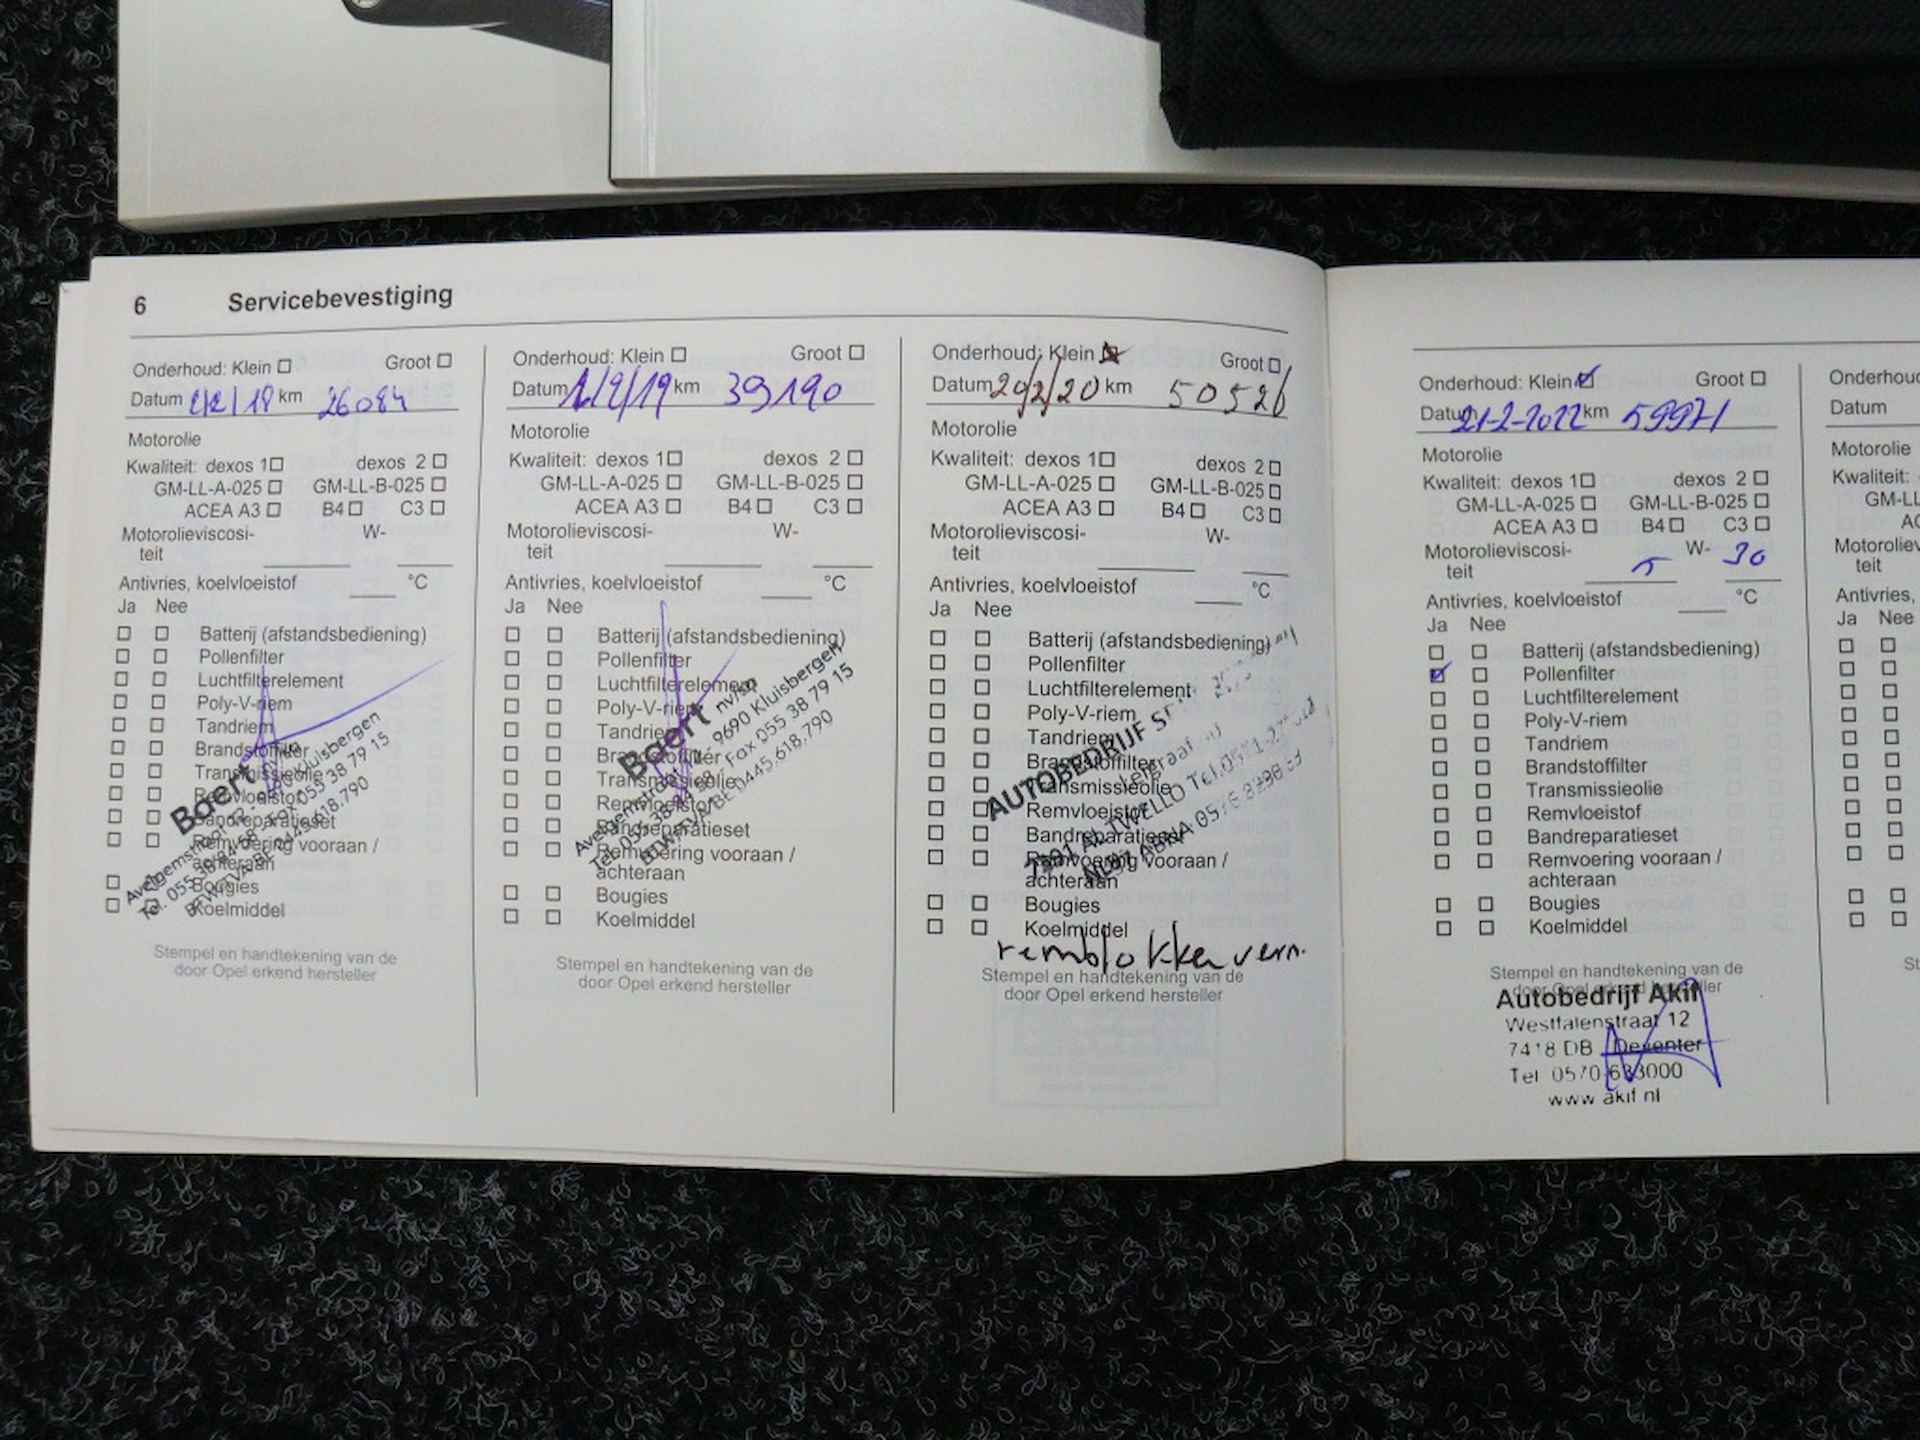 6 Servicebevestiging
Onderhoud: Klein Groot
Datum 2/2/18 km 26084
Motorolie
Kwaliteit: dexos 1 dexos 2
GM-LL-A-025 GM-LL-B-025
ACEA A3 B4 C3
Motorolieviscosi- W-
teit
Antivries, koelvloeistof °C
Ja Nee
Batterij (afstandsbediening)
Pollenfilter
Luchtfilterelement
Poly-V-riem
Tandriem
Brandstoffilter
Transmissieolie
Remvloeistof
Bandreparatieset
Remvoering vooraan /
achteraan
Bougies
Koelmiddel
Baert nv/hp
9690 Kluisbergen
Tel. 055 38 84 58 - Fax 055 38 79 15
BTW-TVA-BE 0445.618.790
Stempel en handtekening van de
door Opel erkend hersteller
Onderhoud: Klein Groot
Datum /2/19 km 39190
Motorolie
Kwaliteit: dexos 1 dexos 2
GM-LL-A-025 GM-LL-B-025
ACEA A3 B4 C3
Motorolieviscosi- W-
teit
Antivries, koelvloeistof °C
Ja Nee
Batterij (afstandsbediening)
Pollenfilter
Luchtfilterelement
Poly-V-riem
Tandriem
Brandstoffilter
Transmissieolie
Remvloeistof
Bandreparatieset
Remvoering vooraan /
achteraan
Bougies
Koelmiddel
Baert nv/hp
Avelgemstraat 9690 Kluisbergen
Tel. 055 38 84 58 - Fax 055 38 79 15
BTW-TVA-BE 0445.618.790
Stempel en handtekening van de
door Opel erkend hersteller
Onderhoud: Klein Groot
Datum 20/2/20 km 50526
Motorolie
Kwaliteit: dexos 1 dexos 2
GM-LL-A-025 GM-LL-B-025
ACEA A3 B4 C3
Motorolieviscosi- W-
teit
Antivries, koelvloeistof °C
Ja Nee
Batterij (afstandsbediening)
Pollenfilter
Luchtfilterelement
Poly-V-riem
Tandriem
Brandstoffilter
Transmissieolie
Remvloeistof
Bandreparatieset
Remvoering vooraan /
achteraan
Bougies
Koelmiddel
AUTOBEDRIJF
TWELLO Tel.
ABNA
remblokken vern.
Stempel en handtekening van de
door Opel erkend hersteller
Onderhoud: Klein Groot
Datum 21-2-2022 km 59971
Motorolie
Kwaliteit: dexos 1 dexos 2
GM-LL-A-025 GM-LL-B-025
ACEA A3 B4 C3
Motorolieviscosi- 5 W- 30
teit
Antivries, koelvloeistof °C
Ja Nee
Batterij (afstandsbediening)
Pollenfilter
Luchtfilterelement
Poly-V-riem
Tandriem
Brandstoffilter
Transmissieolie
Remvloeistof
Bandreparatieset
Remvoering vooraan /
achteraan
Bougies
Koelmiddel
Stempel en handtekening van de
door Opel erkend hersteller
Autobedrijf Akif
Westfalenstraat 12
7418 DB Deventer
Tel 0570-633000
www akif nl
Onderhoud
Datum
Motorolie
Kwaliteit:
GM-LL
AC
Motoroliev
teit
Antivries,
Ja Nee
St